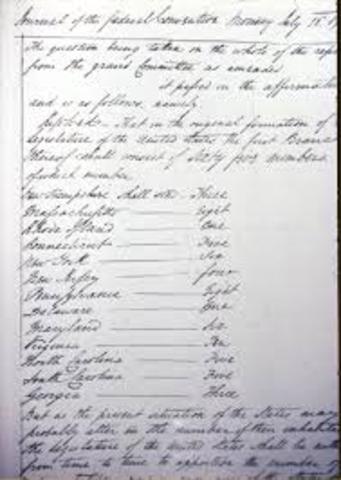 Journal of the federal Convention Monday July 16.
The question being taken on the whole of the report
from the grand Committee as amended
it passed in the affirmative
and is as follows, namely
That in the original formation of
Legislature of the United States the first Branch
thereof shall consist of Sixty five members
of which number
New Hampshire shall send Three
Massachusetts Eight
Rhode Island One
Connecticut Five
New York Six
New Jersey four
Pennsylvania Eight
Delaware One
Maryland Six
Virginia Ten
North Carolina Five
South Carolina Five
Georgia Three
But as the present situation of the States may
probably alter in the number of their inhabitants
the Legislature of the United States shall be
from time to time to apportion the number of